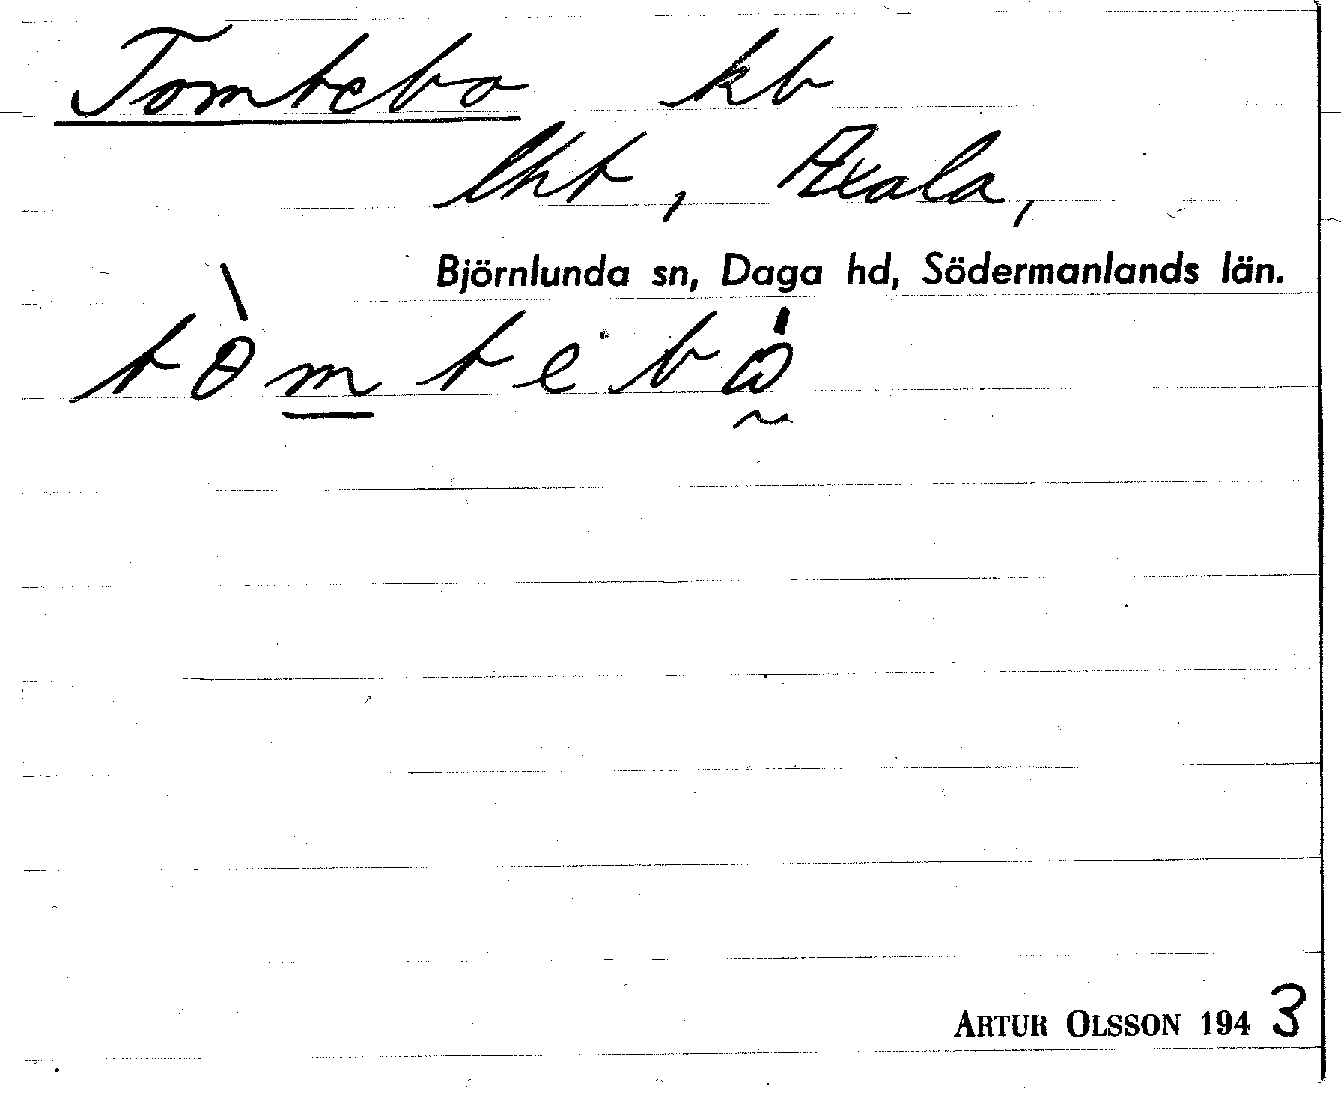 Tomtebo kb
lht, Axala,
Björnlunda sn, Daga hd, Södermanlands län.
tòmtebω̇
ARTUR OLSSON 1943